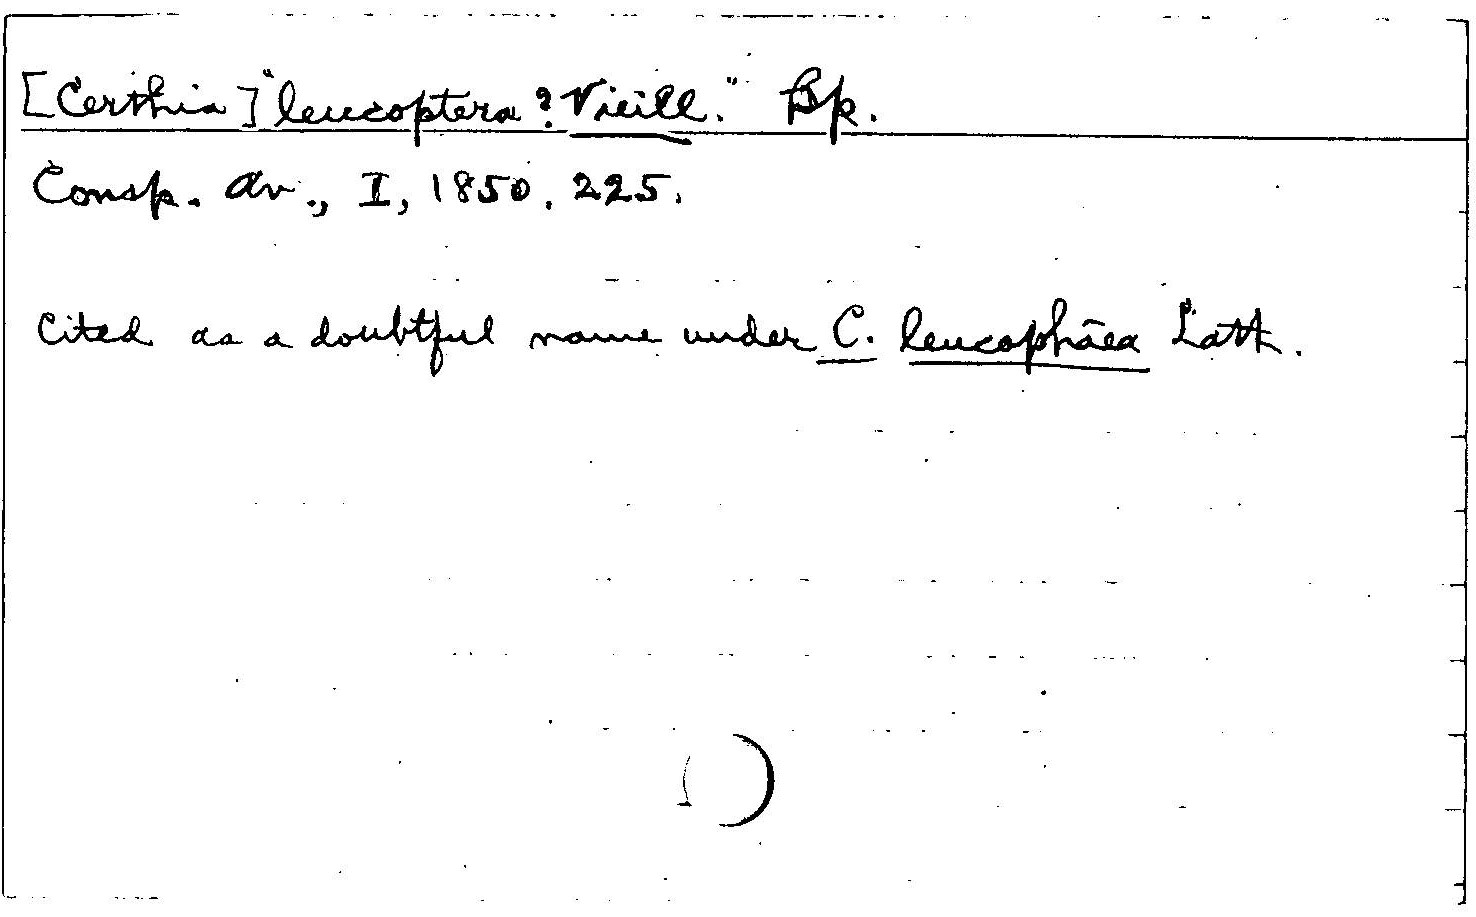 [Certhia] "leucoptera? Vieill." Bp.
Consp. Av., I, 1850, 225.
Cited as a doubtful name under C. leucophāea Lath.